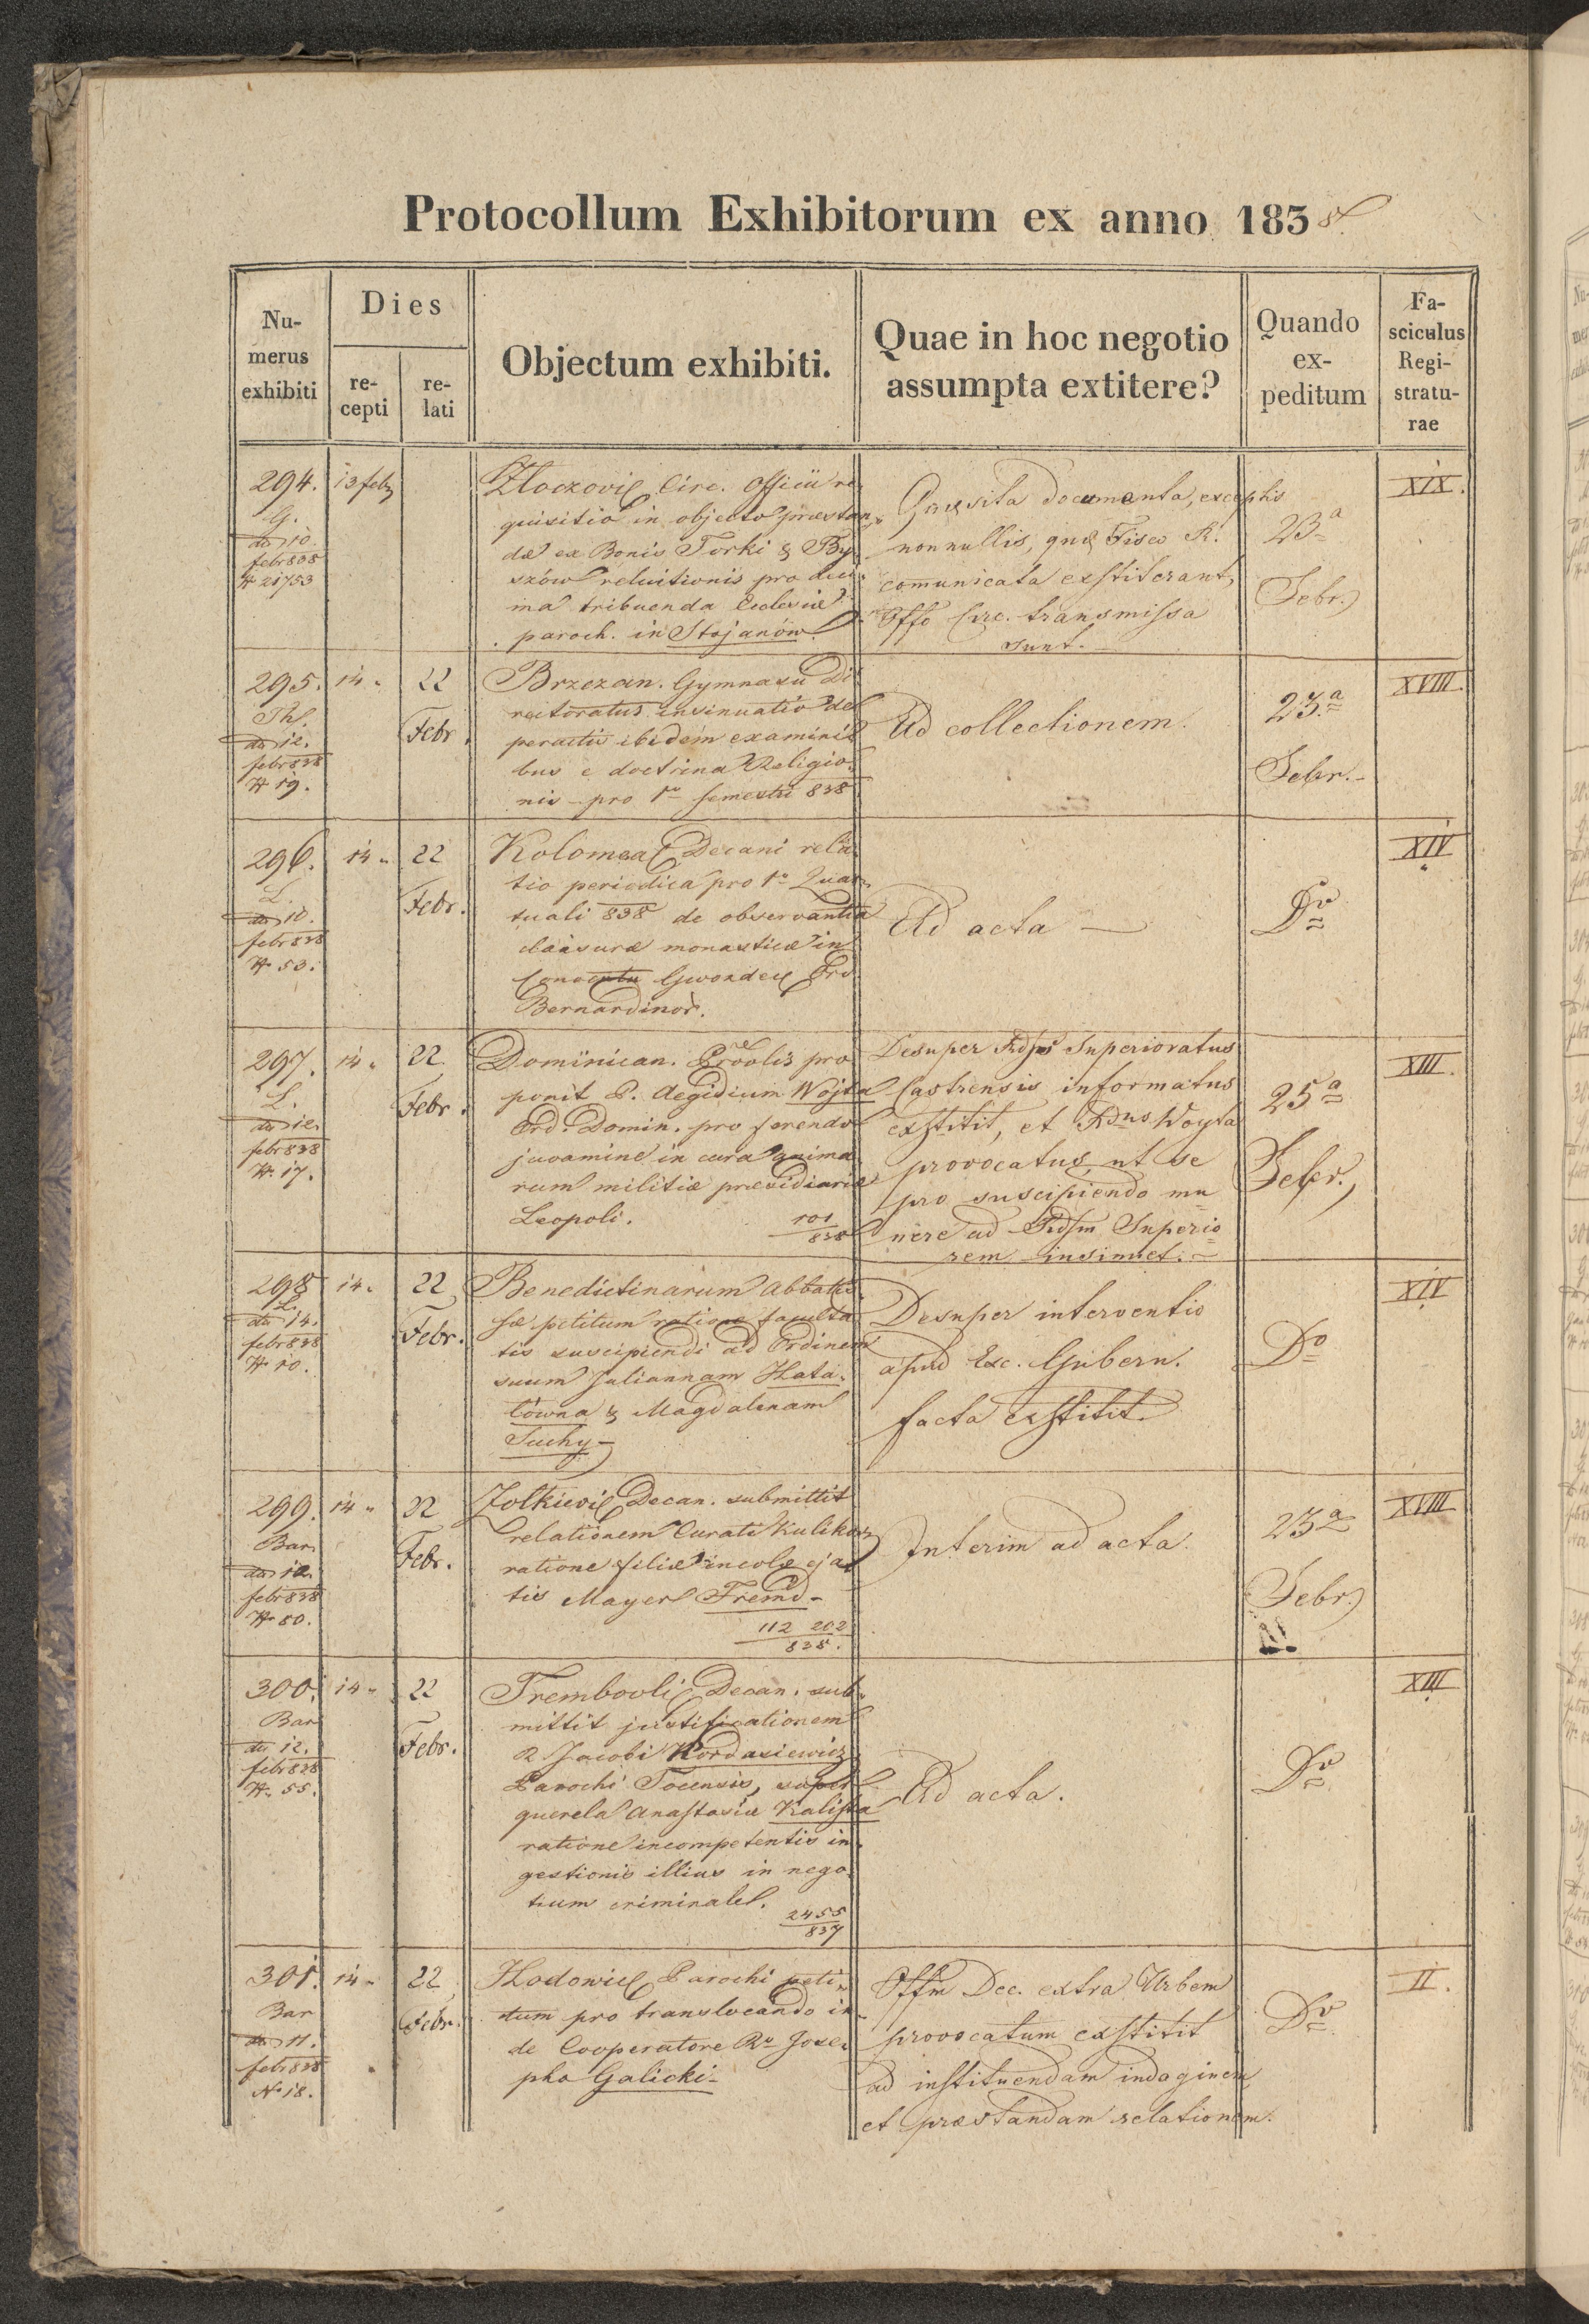 Protocollum Exhibitorum ex anno 1838
Numerus exhibiti
Dies
recepti
relati
Objectum exhibiti.
Quae in hoc negotio
assumpta extitere?
Quando
ex-
peditum
Fa-
sciculus
Regi-
stratu-
rae
294.
G.
dto 10.
febr 838
N 21753
13 feb
Zloczovie Circ. Officii re
quisitio in objecto præstan
dæ ex Bonis Torki & By
szów reluitionis pro deci
ma tribuenda Ecclesiæ
paroch. in Stojanów
Quæsita documenta, exceptis
nonnullis, quæ Fisco R.
comunicata exstiterant,
Offo Circ. transmissa
sunt.
23a
Febr.
XIX.
295.
Th.
dto 12.
febr 838
N 19.
14 "
22
Febr.
Brzezan. Gymnasii Di
rectoratus insinuatio de
peractis ibidem examini
bus e doctrina Religio
nis pro 1o semestri 838
Ad collectionem.
23.a
Febr.
XVIII.
296.
L.
dto 10.
febr 838
N 53.
14 "
22
Febr.
Kolomeae Decani rela
tio periodica pro 1o Quar
tuali 838 de observantia
clausuræ monasticæ in
Gwozdec Ord.
Bernardinor.
Ad acta
Do
XIV
297.
L.
dto 12.
febr 838
N. 17.
14 "
22
Febr.
Dominican. Provlis pro
ponit P. Aegidium Wojta
Ord. Domin. pro ferendo
juvamine in cura anima
rum militiæ præsidiariæ
Leopoli.
101
838
Desuper Rdss Superioratus
Castrensis informatus
exstitit, et Rdus Woyta
provocatus, ut se
pro suscipiendo mu
nere ad Rdsm Superio
rem insinuet.
25a
Febr.
XIII.
298
L.
dto 14.
febr 838
N 10.
14 "
22
Febr.
Benedictinarum Abbatis
sæ petitum ratione faculta
tis suscipiendi ad Ordinem
suum Juliannam Hata
tówna & Magdalenam
Suchy
Desuper interventio
apud Exc. Gubern.
facta exstitit.
Do
XIV
299.
Bar
dto 12.
febr 838
N 80.
14 "
22
Febr.
Zolkievie Decan. submittit
relationem Curati Kulikov
ratione filiæ incolæ eja
tis Mayer Fremd
112 202
838.
Interim ad acta.
23a
Febr.
XVIII
300.
Bar
dto 12.
febr 838
N. 55.
14 "
22
Febr.
Trembovlie Decan. sub
mittit justificationem
R Jacobi Kordasiewicz
Parochi Tocensis, super
querela Anastasiæ Kaliska
ratione incompetentis in
gestionis illius in nego
tium criminale.
2455
837
Ad acta.
Do
XIII
301.
Bar
dto 11.
febr 838
No 18.
14 "
22
Febr.
Hodovice Parochi peti
tum pro translocando in
de Cooperatore Ro Jose
pho Galicki
Offm Dec. extra Urbem
provocatum exstitit
ad instituendam indaginem
et præstandam relationem.
Do
II.